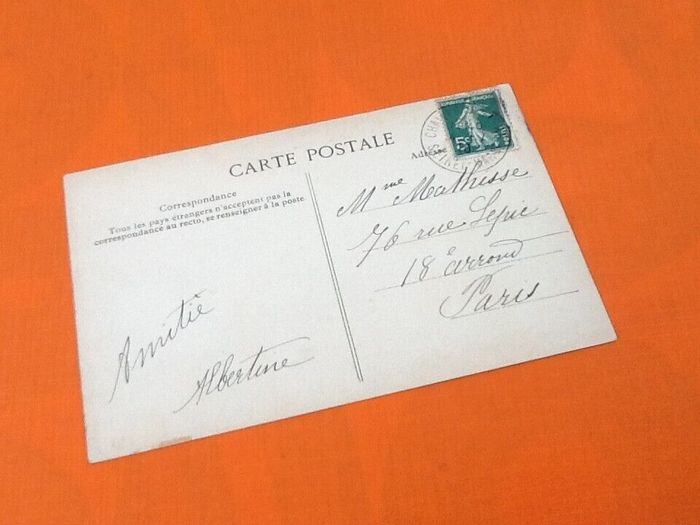 CARTE POSTALE
Correspondance
Tous les pays étrangers n'acceptent pas la
correspondance au recto, se renseigner à la poste.
Amitié
Albertine
Adresse
REPUBLIQUE FRANÇAISE
5c
Mme Mathisse
76 rue Lepic
18e arrond
Paris